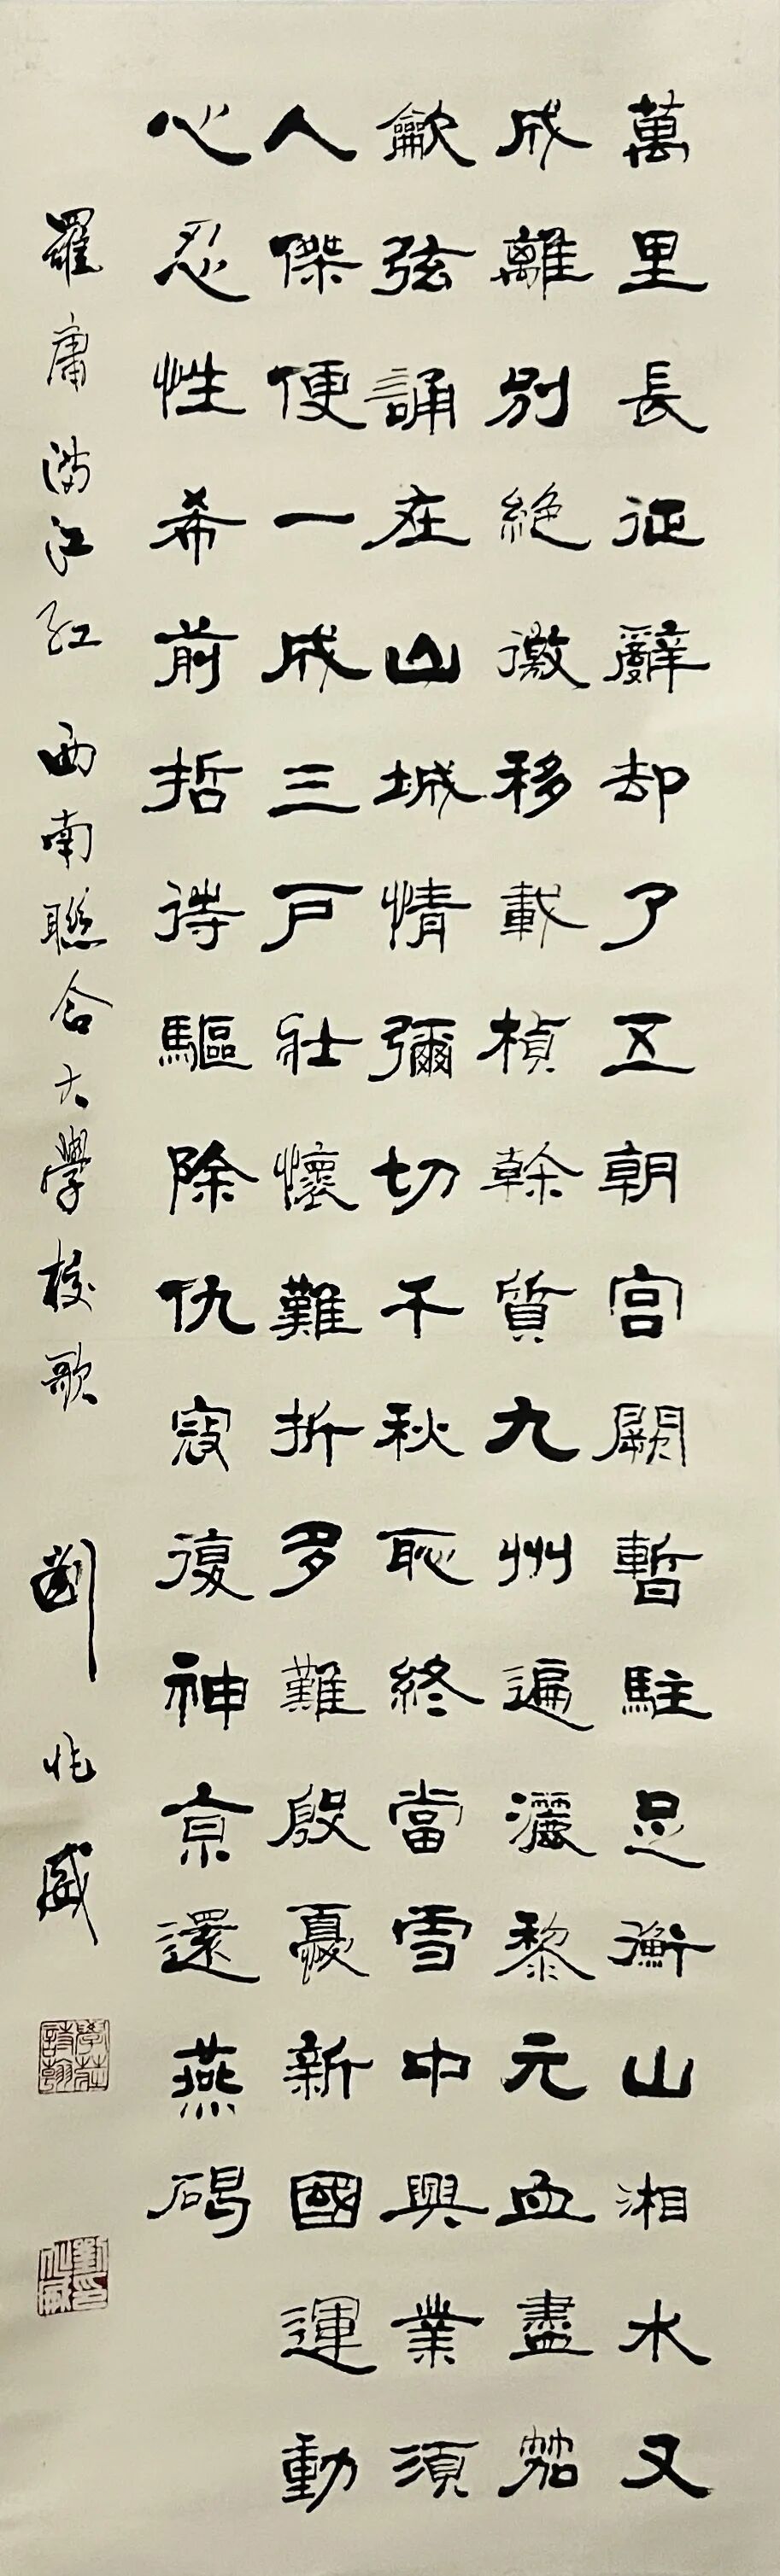 萬里長征辭却了五朝宮闕暫駐足衡山湘水又
成離別絕徼移載楨幹質九州遍灑黎元血盡笳
龡弦誦在山城情彌切千秋恥終當雪中興業須
人傑便一成三戶壯懷難折多難殷憂新國運動
心忍性希前哲待驅除仇寇復神京還燕碣
羅庸滿江紅 西南聯合大學校歌 劉兆威